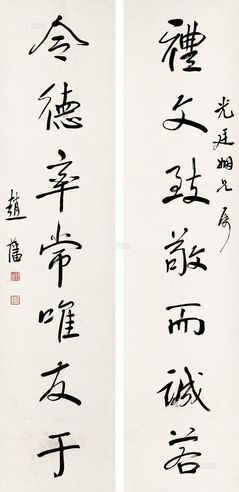 光廷姻兄屬
禮文致敬而誠若
令德率常唯友于
趙藩